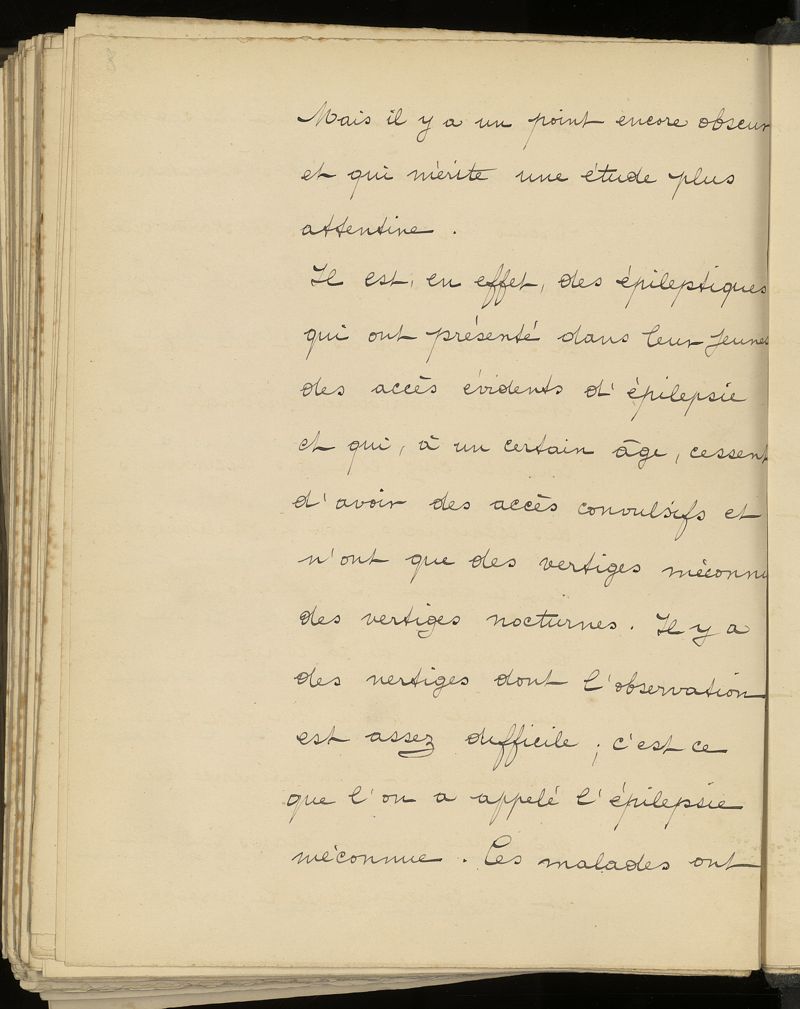 Mais il y a un point encore obscur
et qui mérite une étude plus
attentive .
Il est, en effet, des épileptiques
qui ont présenté dans leur jeunes
des accès évidents d'épilepsie
et qui, à un certain âge, cessent
d'avoir des accès convulsifs et
n'ont que des vertiges méconnu
des vertiges nocturnes. Il y a
des vertiges dont l'observation
est assez difficile ; c'est ce
que l'on a appelé l'épilepsie
méconnue . Ces malades ont